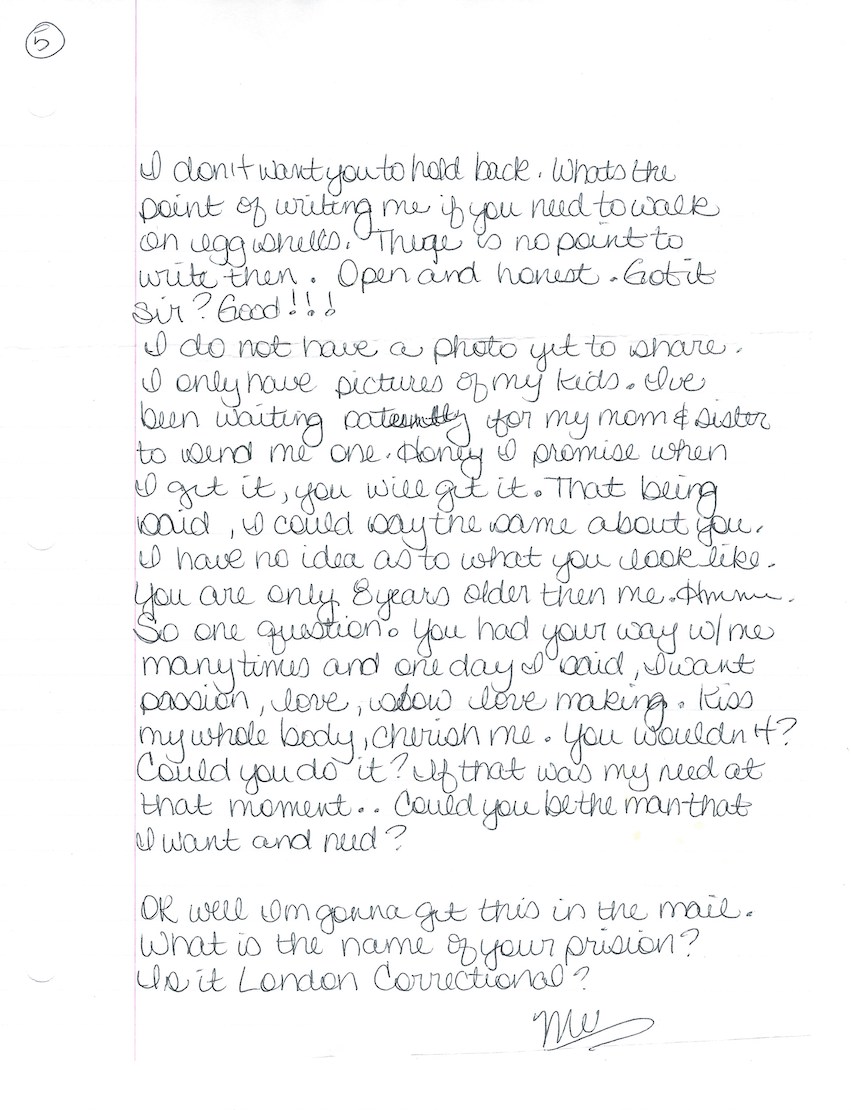 5
I don't want you to hold back. Whats the
point of writing me if you need to walk
on egg shells. There is no point to
write then. Open and honest. Got it
sir? Good!!!
I do not have a photo yet to share.
I only have pictures of my kids. I've
been waiting for my mom & sister
to send me one. Honey I promise when
I get it, you will get it. That being
said, I could say the same about you.
I have no idea as to what you look like.
You are only 8 years older then me. Hmmm.
So one question. You had your way w/me
many times and one day I said, I want
passion, love, slow love making. Kiss
my whole body, cherish me. You wouldn't?
Could you do it? If that was my need at
that moment.. Could you be the man that
I want and need?
OK well Im gonna get this in the mail.
What is the name of your prision?
Is it London Correctional?
Me